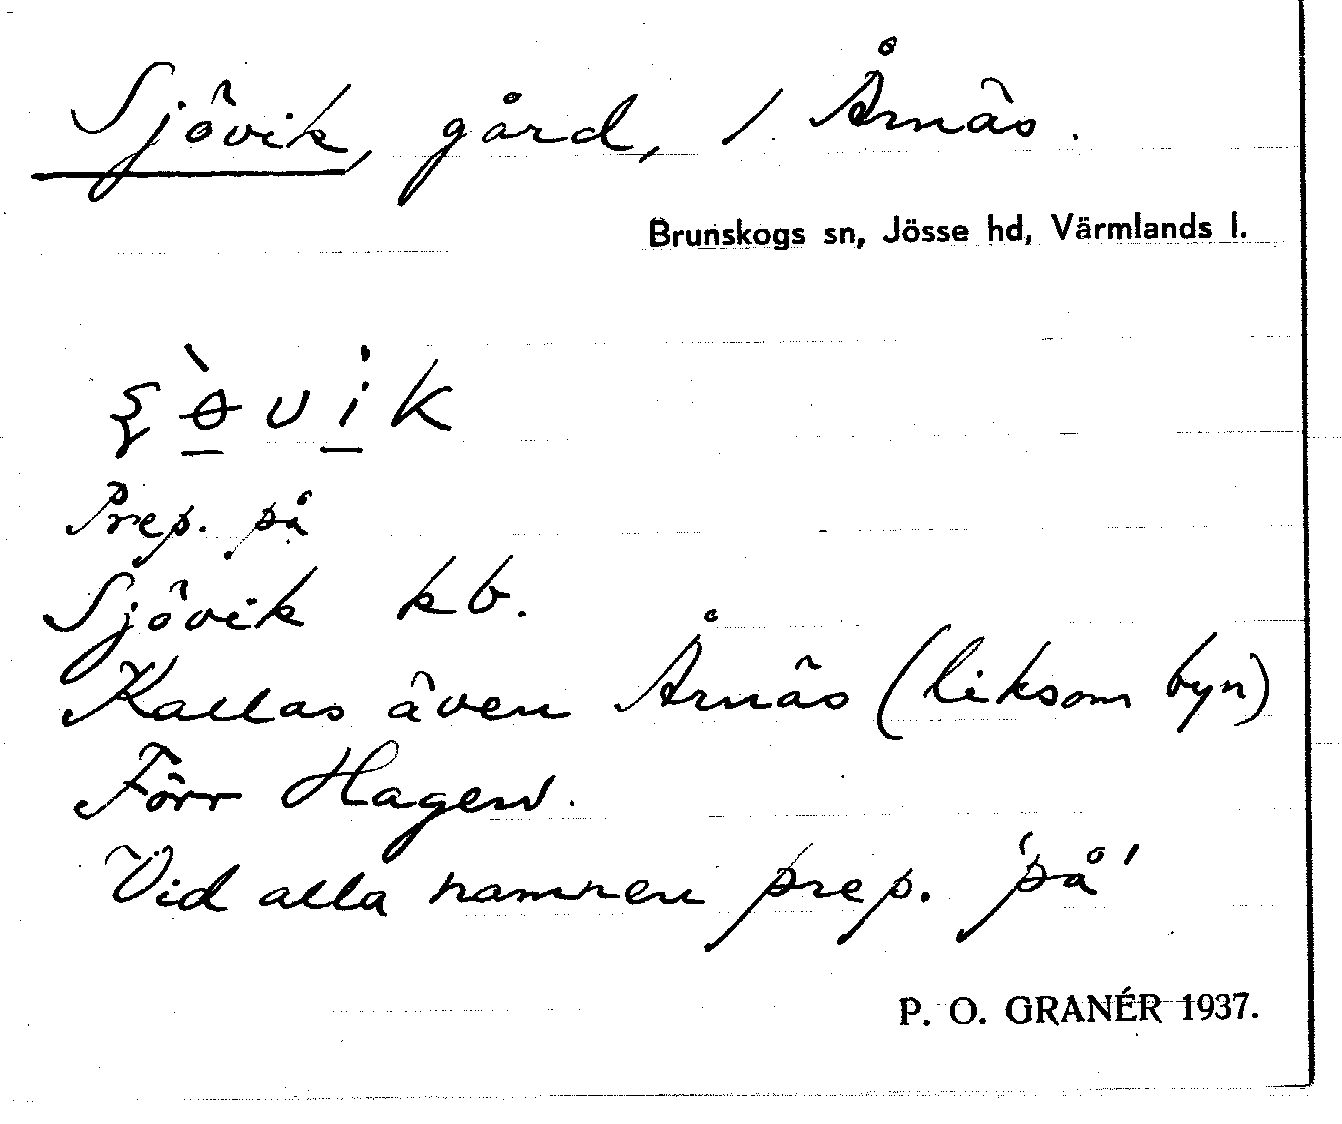 Sjövik, gård, / Årnäs.
Brunskogs sn, Jösse hd, Värmlands l.
Prep. på
Sjövik kb.
Kallas även Årnäs (liksom byn)
Förr Hagen.
Vid alla namnen prep. 'på'
P. O. GRANÉR 1937.